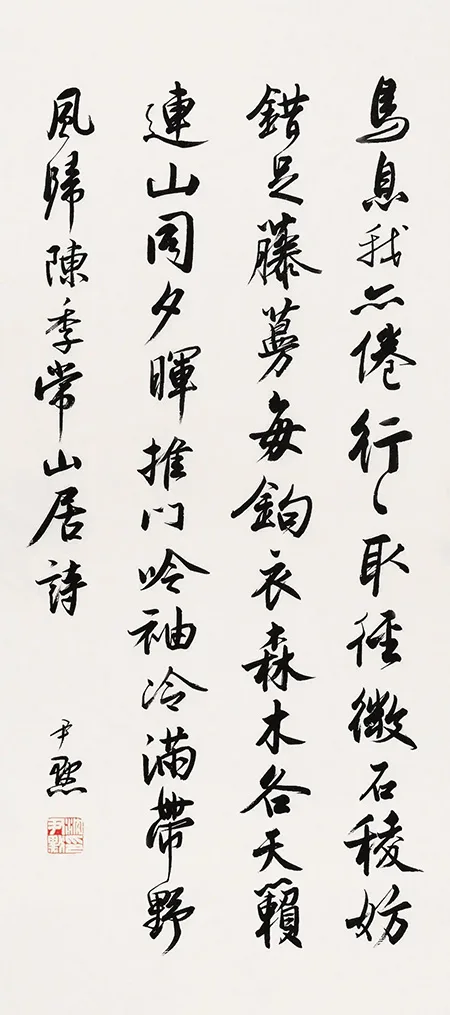 鳥息我亦倦行々取徑微石稜妨
錯足藤蔓每鉤衣森木各天籟
連山同夕暉推門吟袖冷滿帶野
風歸陳季常山居詩
尹默